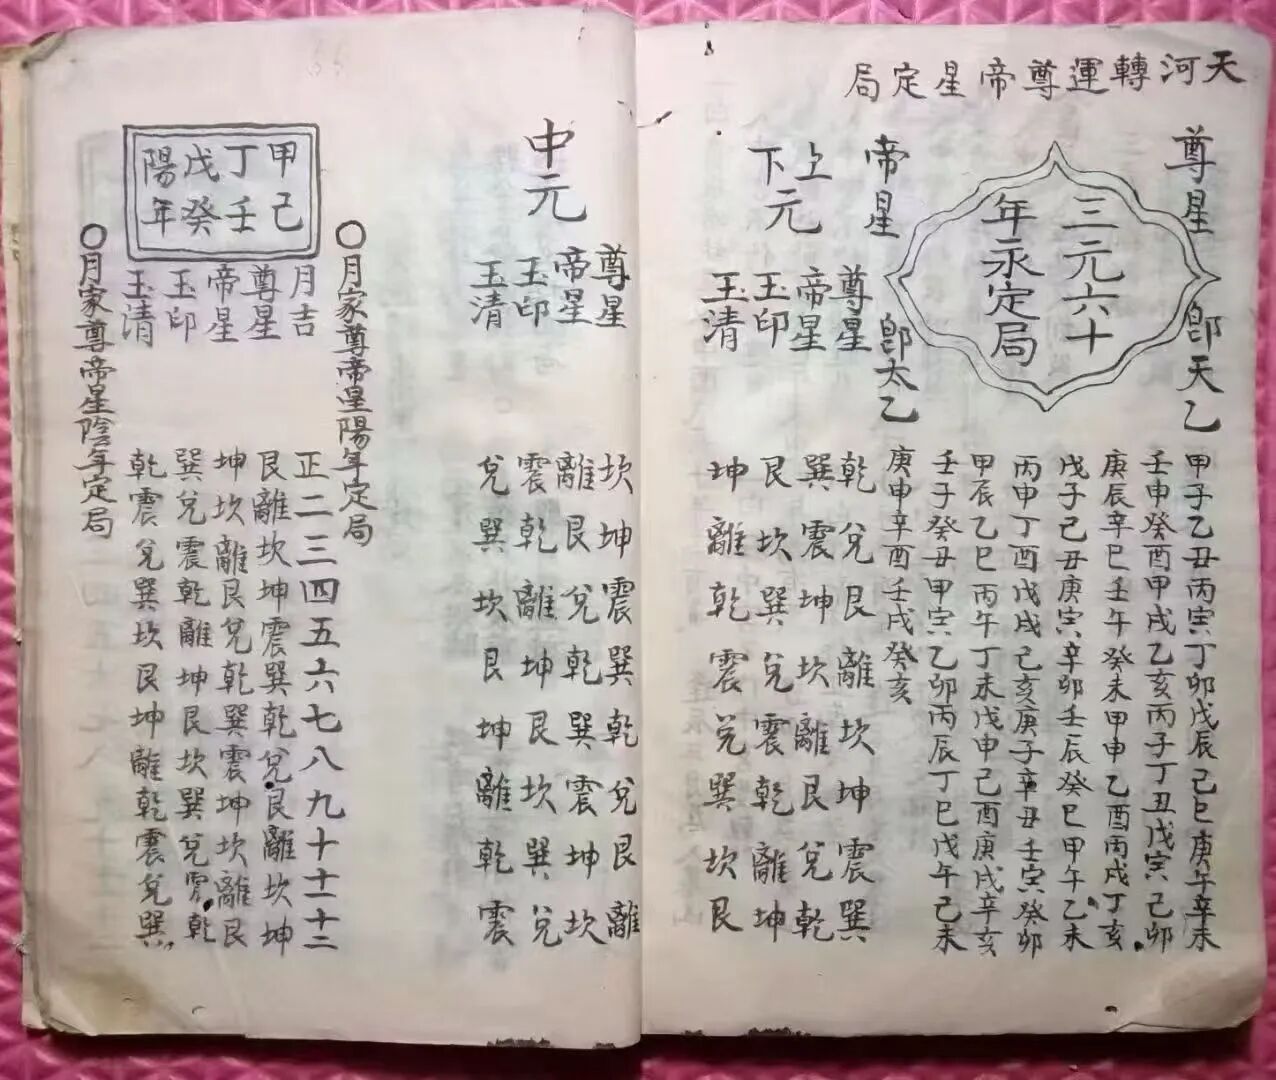 天河轉運尊帝星定局
尊星 卽天乙
三元六十
年永定局
帝星 卽太乙
甲子乙丑丙寅丁卯戊辰己巳庚午辛未
壬申癸酉甲戌乙亥丙子丁丑戊寅己卯
庚辰辛巳壬午癸未甲申乙酉丙戌丁亥
戊子己丑庚寅辛卯壬辰癸巳甲午乙未
丙申丁酉戊戌己亥庚子辛丑壬寅癸卯
甲辰乙巳丙午丁未戊申己酉庚戌辛亥
壬子癸丑甲寅乙卯丙辰丁巳戊午己未
庚申辛酉壬戌癸亥
上下元
尊星 乾兌艮離坎坤震巽
帝星 巽震坤坎離艮兌乾
玉印 艮坎巽兌震乾離坤
玉清 坤離乾震兌巽坎艮
中元
尊星 坎坤震巽乾兌艮離
帝星 離艮兌乾巽震坤坎
玉印 震乾離坤艮坎巽兌
玉清 兌巽坎艮坤離乾震
〇月家尊帝星陽年定局
甲己
丁壬
戊癸
陽年
月吉 正二三四五六七八九十十一十二
尊星 艮離坎坤震巽乾兌艮離坎坤
帝星 坤坎離艮兌乾巽震坤坎離艮
玉印 巽兌震乾離坤艮坎巽兌震乾
玉清 乾震兌巽坎艮坤離乾震兌巽
〇月家尊帝星陰年定局